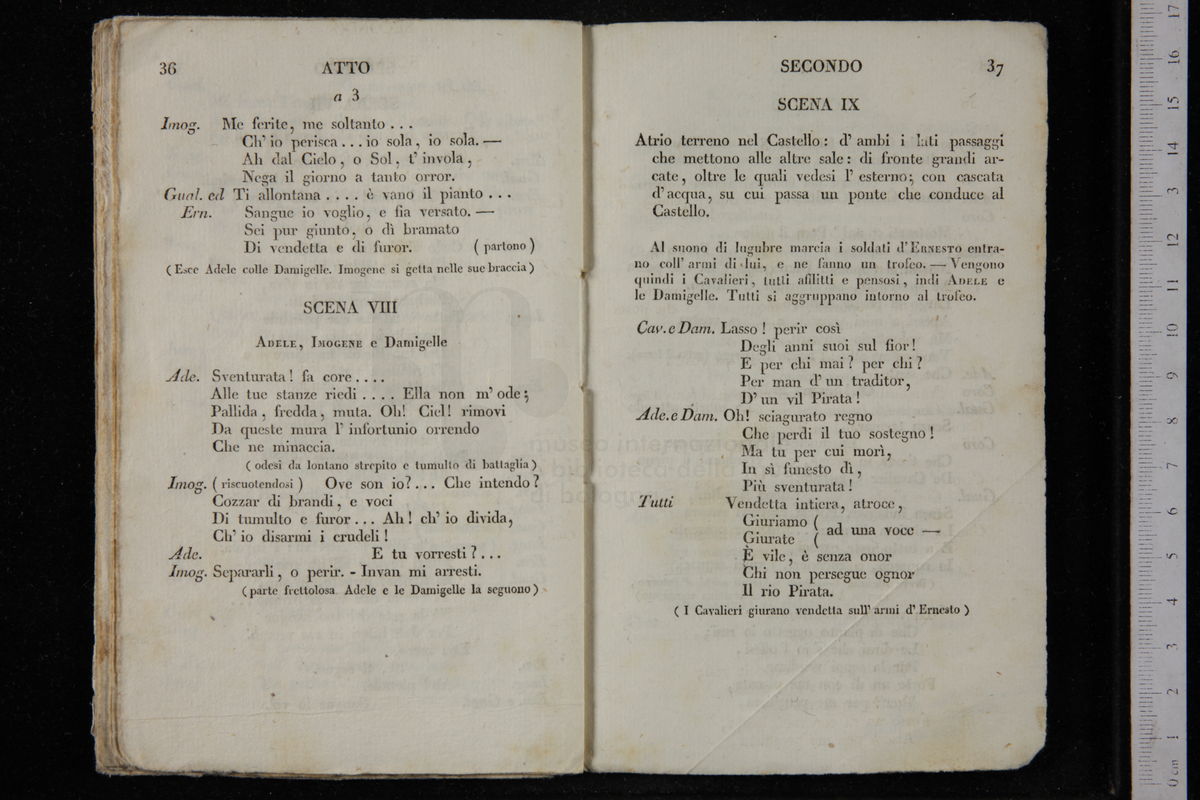 36 ATTO
a 3
Imog. Me ferite, me soltanto . . .
Ch' io perisca . . . io sola, io sola. —
Ah dal Cielo, o Sol, t' invola,
Nega il giorno a tanto orror.
Gual. ed Ti allontana . . . . è vano il pianto . . .
Ern. Sangue io voglio, e fia versato. —
Sei pur giunto, o dì bramato
Di vendetta e di furor. ( partono )
( Esce Adele colle Damigelle. Imogene si getta nelle sue braccia )
SCENA VIII
ADELE, IMOGENE e Damigelle
Ade. Sventurata! fa core . . . .
Alle tue stanze riedi . . . . Ella non m' ode;
Pallida, fredda, muta. Oh! Ciel! rimovi
Da queste mura l' infortunio orrendo
Che ne minaccia.
( odesi da lontano strepito e tumulto di battaglia )
Imog. ( riscuotendosi ) Ove son io? . . . Che intendo?
Cozzar di brandi, e voci
Di tumulto e furor . . . Ah! ch' io divida,
Ch' io disarmi i crudeli!
Ade. E tu vorresti? . . .
Imog. Separarli, o perir. - Invan mi arresti.
( parte frettolosa. Adele e le Damigelle la seguono )
SECONDO 37
SCENA IX
Atrio terreno nel Castello: d' ambi i lati passaggi
che mettono alle altre sale: di fronte grandi ar-
cate, oltre le quali vedesi l' esterno; con cascata
d' acqua, su cui passa un ponte che conduce al
Castello.
Al suono di lugubre marcia i soldati d' ERNESTO entra-
no coll' armi di lui, e ne fanno un trofeo. — Vengono
quindi i Cavalieri, tutti afflitti e pensosi, indi ADELE e
le Damigelle. Tutti si aggruppano intorno al trofeo.
Cav. e Dam. Lasso! perir così
Degli anni suoi sul fior!
E per chi mai? per chi?
Per man d' un traditor,
D' un vil Pirata!
Ade. e Dam. Oh! sciagurato regno
Che perdi il tuo sostegno!
Ma tu per cui morì,
In sì funesto dì,
Più sventurata!
Tutti Vendetta intiera, atroce,
Giuriamo (
Giurate ( ad una voce —
È vile, è senza onor
Chi non persegue ognor
Il rio Pirata.
( I Cavalieri giurano vendetta sull' armi d' Ernesto )
museo internazionale
biblioteca della
di bologna
0 cm 1 2 3 4 5 6 7 8 9 10 11 12 13 14 15 16 17